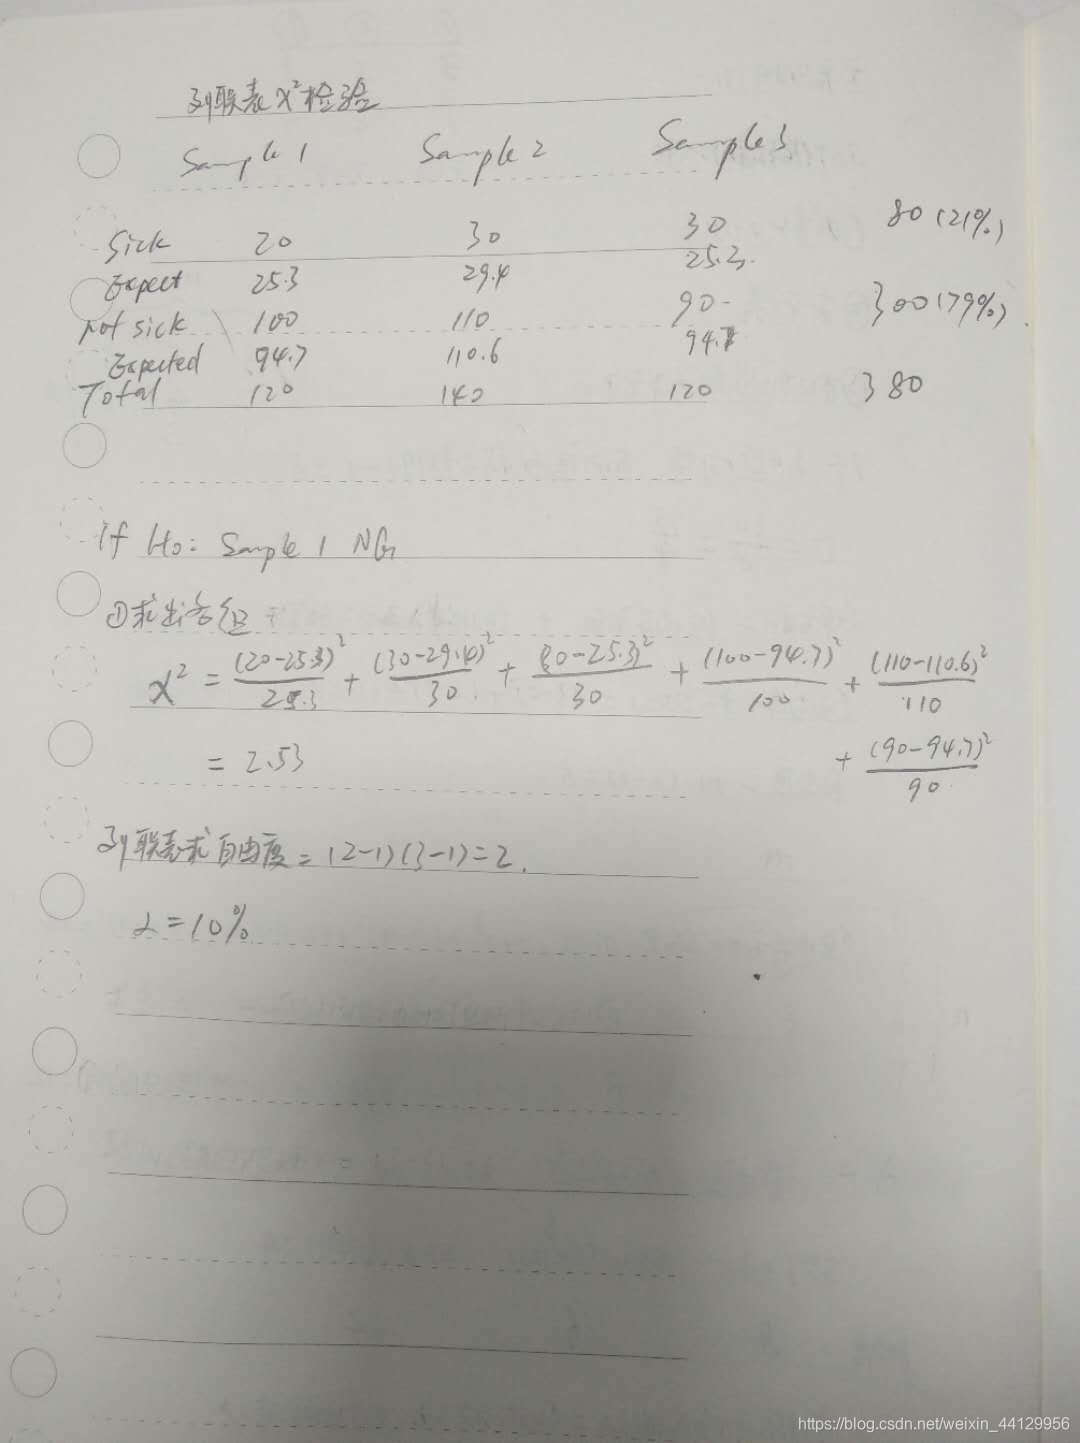 列联表 χ² 检验
Sample 1 Sample 2 Sample 3
Sick 20 30 30 80 (21%)
Expect 25.3 29.4 25.3.
not sick 100 110 90 300 (79%)
Expected 94.7 110.6 94.7
Total 120 140 120 380
if H₀: Sample 1 NG
①求出各组
χ² = (20-25.3)²/25.3 + (30-29.4)²/30 + (30-25.3)²/30 + (100-94.7)²/100 + (110-110.6)²/110
= 2.53 + (90-94.7)²/90
列联表求自由度 = (2-1)(3-1)=2.
α=10%
https://blog.csdn.net/weixin_44129956